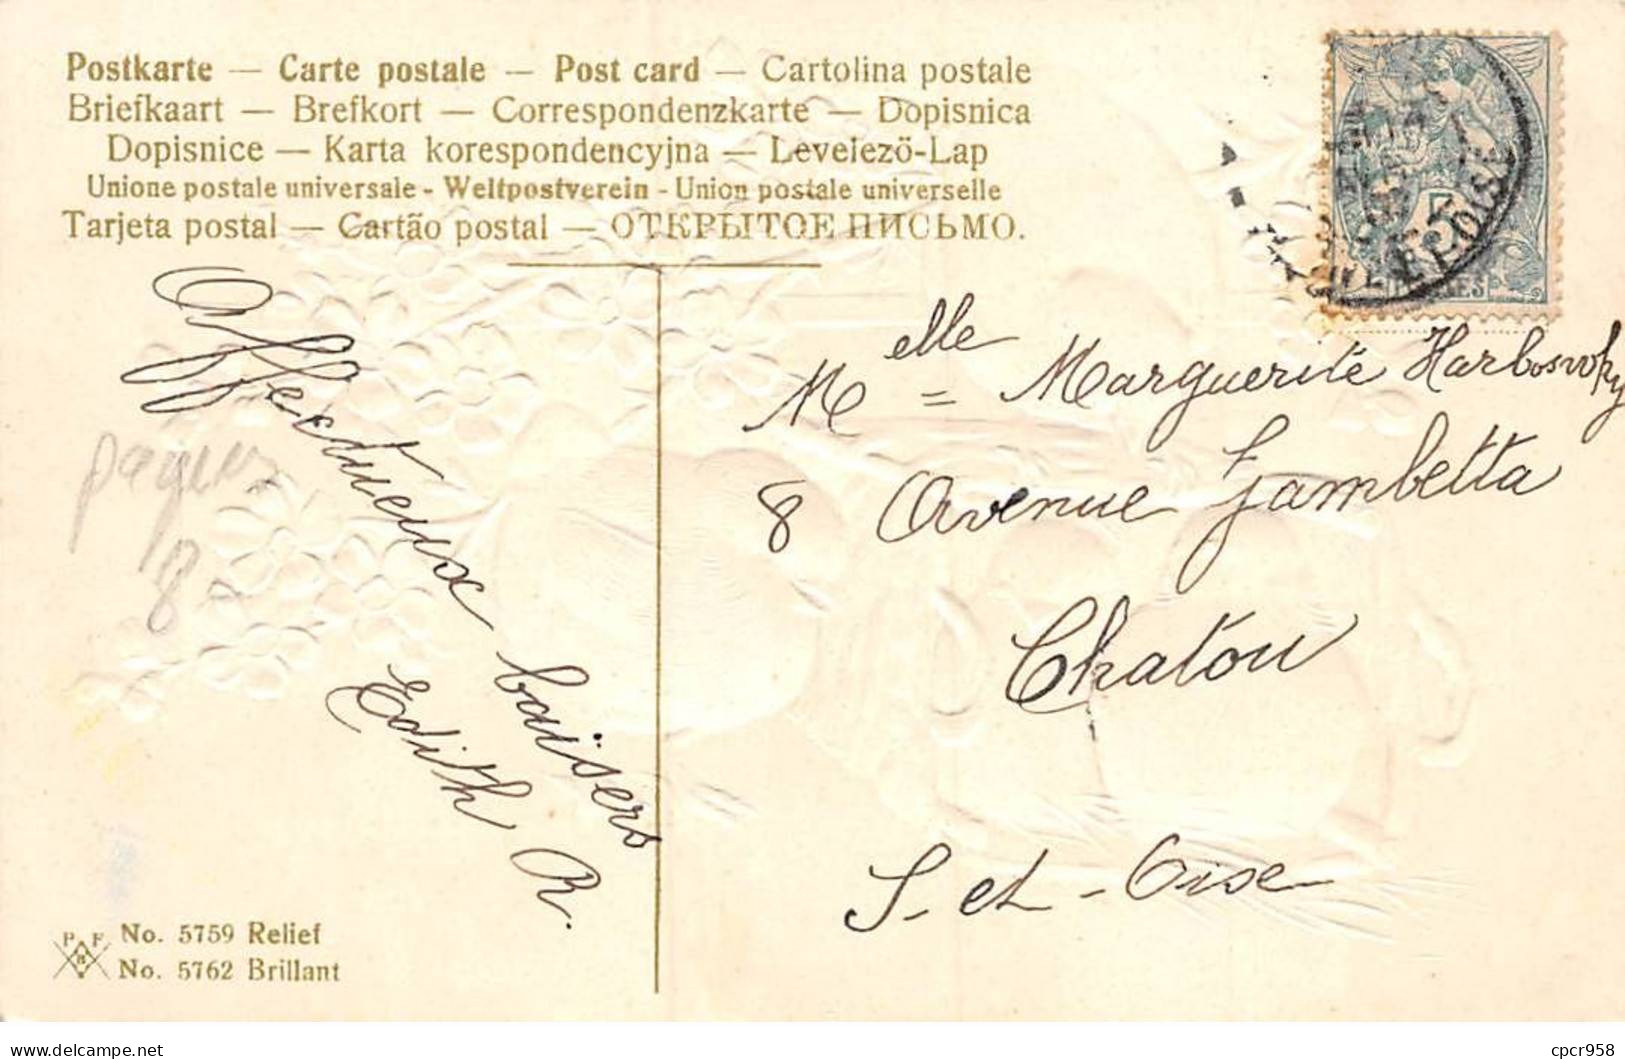 Postkarte — Carte postale — Post card — Cartolina postale
Briefkaart — Brefkort — Correspondenzkarte — Dopisnica
Dopisnice — Karta korespondencyjna — Levelezö-Lap
Unione postale universale - Weltpostverein - Union postale universelle
Tarjeta postal — Cartão postal — ОТКРЫТОЕ ПИСЬМО.
Affectueux baisers
Edith R.
8
Melle = Marguerite
8 Avenue Gambetta
Chatou
S-et-Oise
P F B
No. 5759 Relief
No. 5762 Brillant
cpcr958